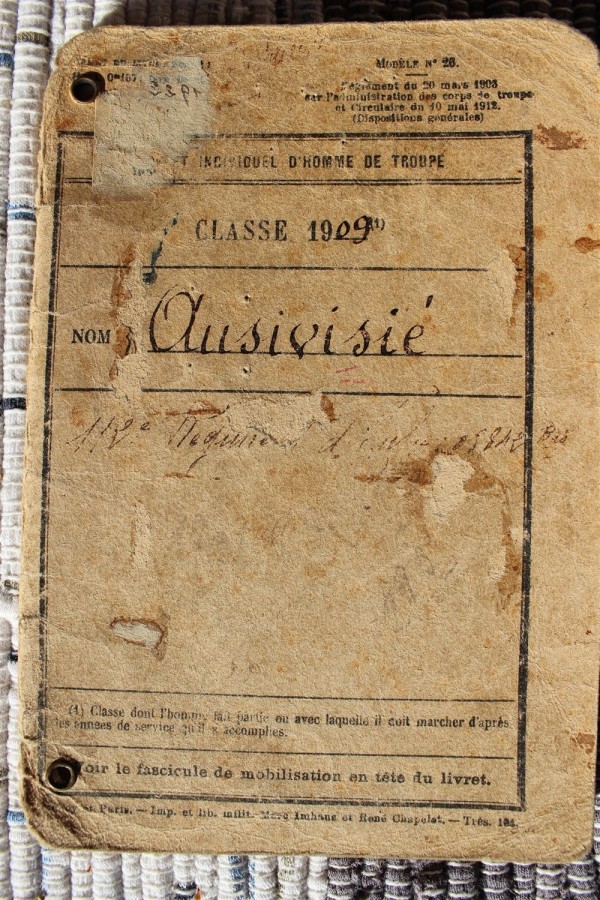 MODÈLE N° 26.
Règlement du 20 mars 1908
sur l'administration des corps de troupe
et Circulaire du 10 mai 1912.
(Dispositions générales)
INDIVIDUEL D'HOMME DE TROUPE
CLASSE 1909 (1)
NOM Ausivisié
112e Régiment d'
(1) Classe dont l'homme fait partie ou avec laquelle il doit marcher d'après
les années de service qu'il a accomplies.
Voir le fascicule de mobilisation en tête du livret.
Paris. — Imp. et lib. milit. Marc Imhaus et René Chapelot. — Trés. 134.